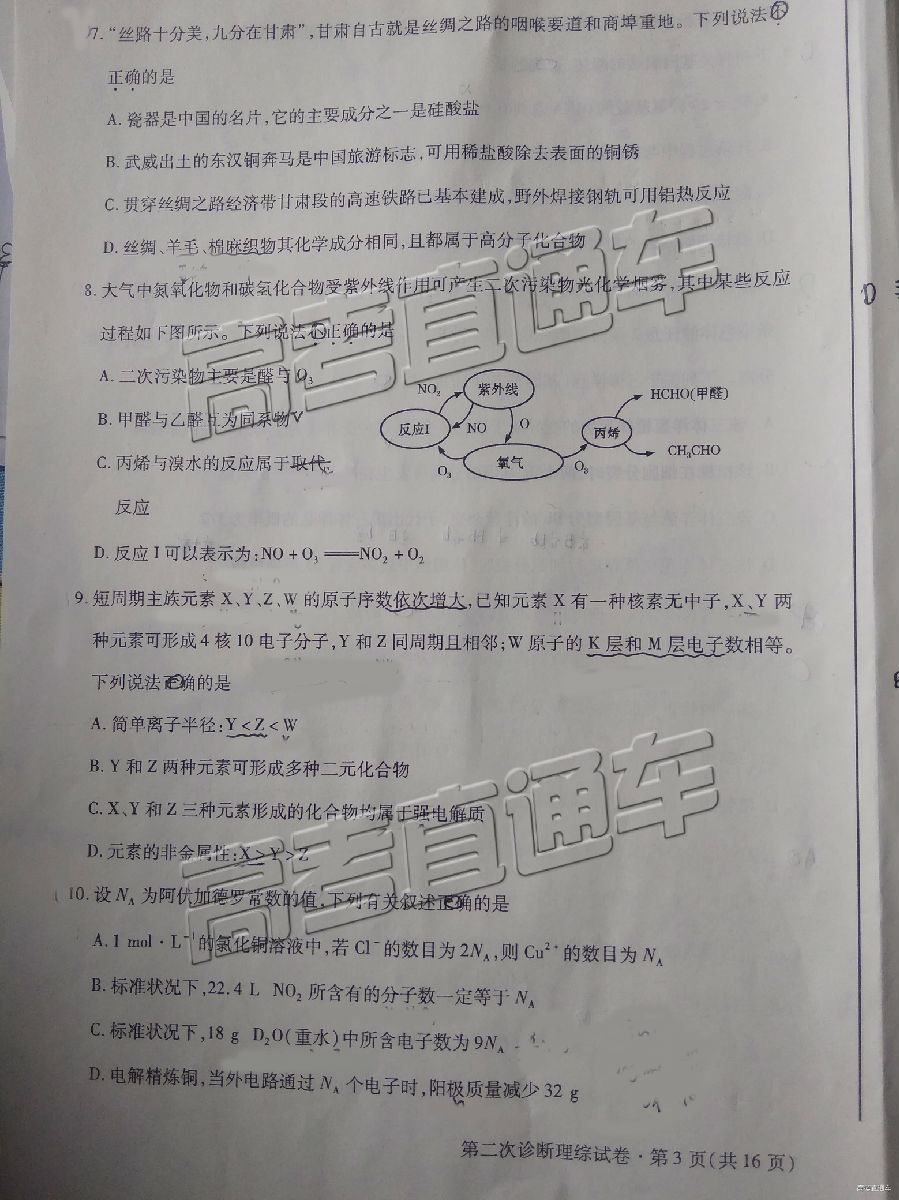 7.“丝路十分美,九分在甘肃”,甘肃自古就是丝绸之路的咽喉要道和商埠重地。下列说法不
正确的是
A. 瓷器是中国的名片,它的主要成分之一是硅酸盐
B. 武威出土的东汉铜奔马是中国旅游标志,可用稀盐酸除去表面的铜锈
C. 贯穿丝绸之路经济带甘肃段的高速铁路已基本建成,野外焊接钢轨可用铝热反应
D. 丝绸、羊毛、棉麻织物其化学成分相同,且都属于高分子化合物
8. 大气中氮氧化物和碳氢化合物受紫外线作用可产生二次污染物光化学烟雾,其中某些反应
过程如下图所示。下列说法不正确的是
A. 二次污染物主要是醛与 O₃
B. 甲醛与乙醛互为同系物
C. 丙烯与溴水的反应属于取代
反应
D. 反应 I 可以表示为:NO + O₃ ══ NO₂ + O₂
NO₂
紫外线
HCHO(甲醛)
反应I
NO
O
丙烯
O₃
氧气
O₃
CH₃CHO
9. 短周期主族元素 X、Y、Z、W 的原子序数依次增大,已知元素 X 有一种核素无中子,X、Y 两
种元素可形成 4 核 10 电子分子,Y 和 Z 同周期且相邻;W 原子的 K 层和 M 层电子数相等。
下列说法正确的是
A. 简单离子半径:Y < Z < W
B. Y 和 Z 两种元素可形成多种二元化合物
C. X、Y 和 Z 三种元素形成的化合物均属于强电解质
D. 元素的非金属性:X > Y > Z
10. 设 N_A 为阿伏加德罗常数的值,下列有关叙述正确的是
A. 1 mol·L⁻¹的氯化铜溶液中,若 Cl⁻ 的数目为 2N_A,则 Cu²⁺ 的数目为 N_A
B. 标准状况下,22.4 L NO₂ 所含有的分子数一定等于 N_A
C. 标准状况下,18 g D₂O(重水)中所含电子数为 9N_A
D. 电解精炼铜,当外电路通过 N_A 个电子时,阳极质量减少 32 g
第二次诊断理综试卷·第 3 页(共 16 页)
高考直通车
高考直通车